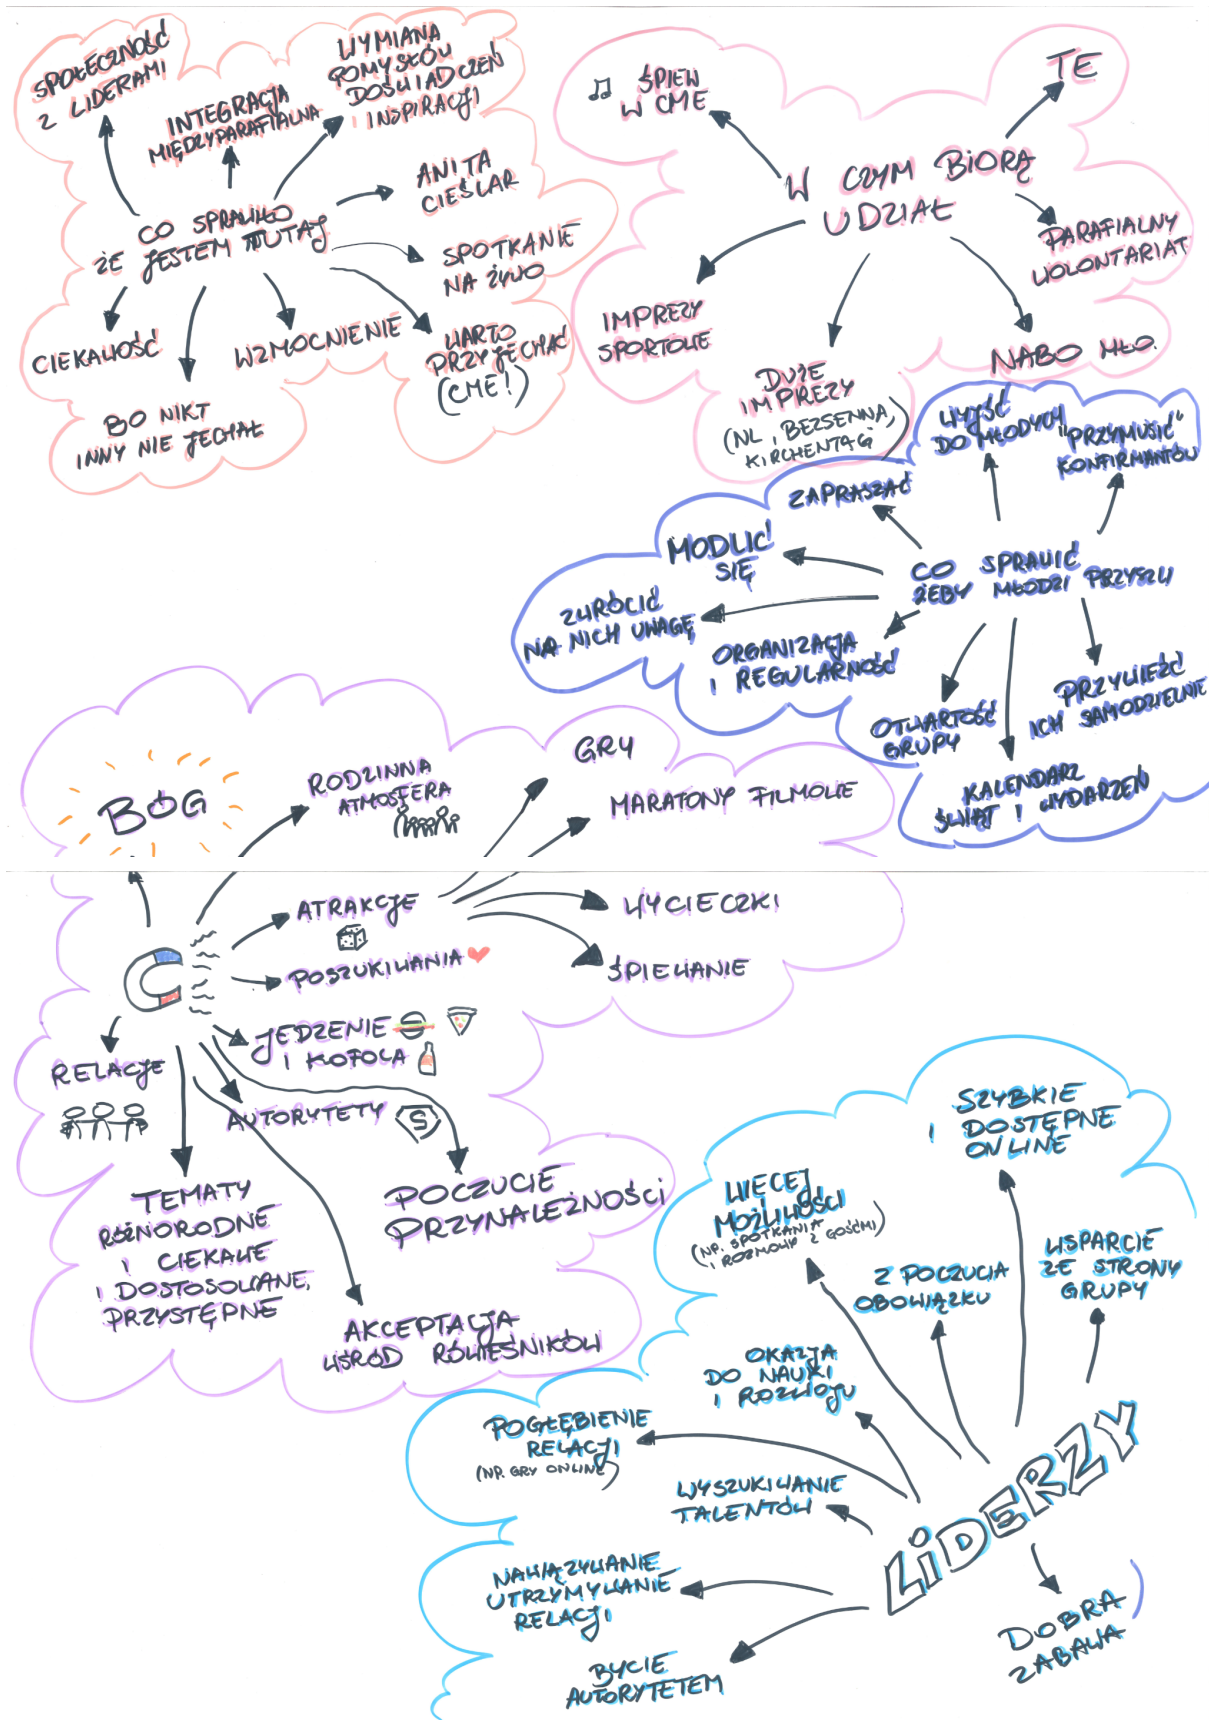 SPOŁECZNOŚĆ
Z LIDERAMI
INTEGRACJA
MIĘDZYPARAFIALNA
WYMIANA
POMYSŁÓW
DOŚWIADCZEŃ
I INSPIRACJI
ANITA
CIEŚLAR
CO SPRAWIŁO
ŻE JESTEM TUTAJ
SPOTKANIE
NA ŻYWO
CIEKAWOŚĆ
WZMOCNIENIE
WARTO
PRZYJECHAĆ
(CME!)
BO NIKT
INNY NIE JECHAŁ
ŚPIEW
W CME
TE
W CZYM BIORĄ
UDZIAŁ
PARAFIALNY
WOLONTARIAT
IMPREZY
SPORTOWE
DUŻE
IMPREZY
(NŁ, BEZSENNA,
KIRCHENTAG)
NABO MŁO.
WYJŚĆ
DO MŁODYCH
"PRZYMUSIĆ"
KONFIRMANTÓW
ZAPRASZAĆ
MODLIĆ
SIĘ
CO SPRAWIĆ
ŻEBY MŁODZI PRZYSZLI
ZWRÓCIĆ
NA NICH UWAGĘ
ORGANIZACJA
I REGULARNOŚĆ
OTWARTOŚĆ
GRUPY
PRZYWIEŹĆ
ICH SAMODZIELNIE
KALENDARZ
ŚWIĄT I WYDARZEŃ
BÓG
RODZINNA
ATMOSFERA
GRY
MARATONY FILMOWE
ATRAKCJE
WYCIECZKI
POSZUKIWANIA
ŚPIEWANIE
JEDZENIE
I KOFOLA
RELACJE
AUTORYTETY
S
TEMATY
RÓŻNORODNE
I CIEKAWE
I DOSTOSOWANE,
PRZYSTĘPNE
POCZUCIE
PRZYNALEŻNOŚCI
AKCEPTACJA
WŚRÓD RÓWIEŚNIKÓW
SZYBKIE
I DOSTĘPNE
ONLINE
WIĘCEJ
MOŻLIWOŚCI
(NP. SPOTKANIA
I ROZMOWY Z GOŚĆMI)
Z POCZUCIA
OBOWIĄZKU
WSPARCIE
ZE STRONY
GRUPY
OKAZJA
DO NAUKI
I ROZWOJU
POGŁĘBIENIE
RELACJI
(NP. GRY ONLINE)
WYSZUKIWANIE
TALENTÓW
LIDERZY
NAWIĄZYWANIE
UTRZYMYWANIE
RELACJI
BYCIE
AUTORYTETEM
DOBRA
ZABAWA